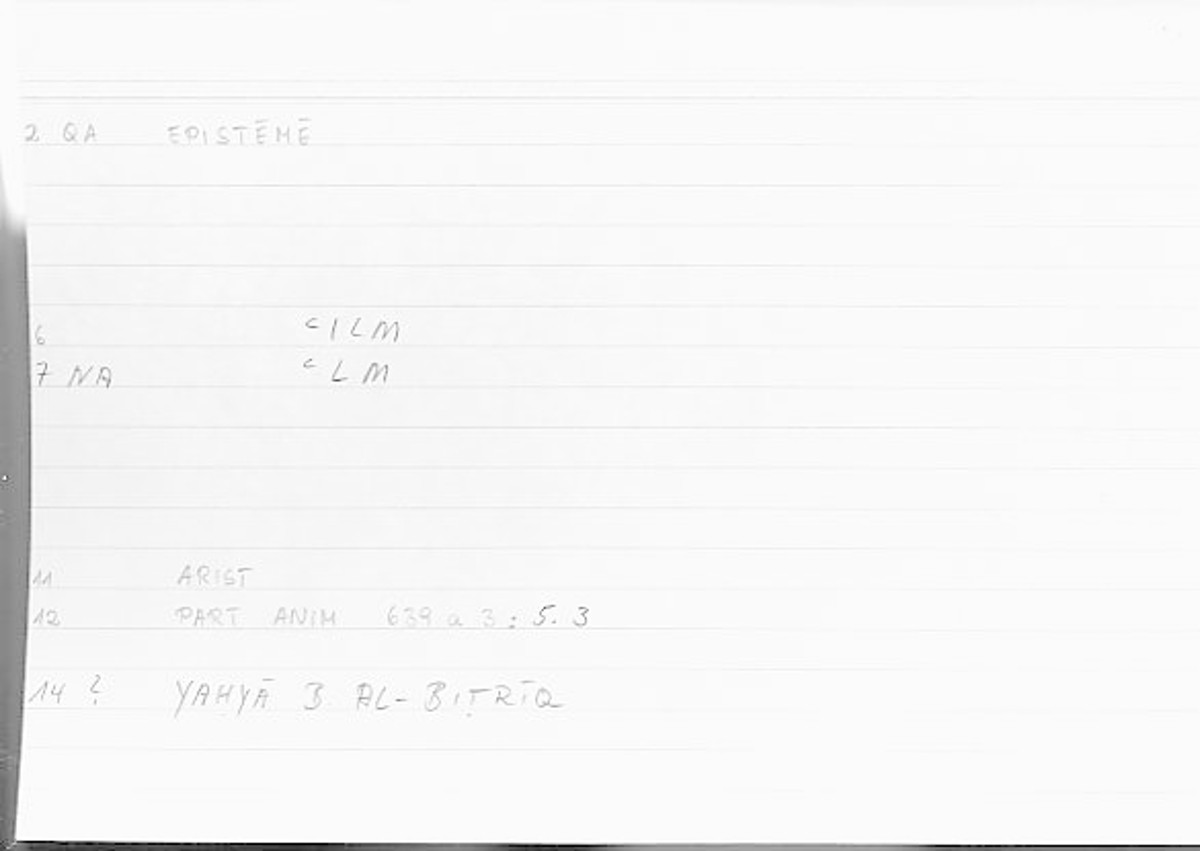 2 QA EPISTĒMĒ
6 ᶜILM
7 NA ᶜLM
11 ARIST
12 PART ANIM 639 a 3 : 5. 3
14 ? YAḤYĀ B AL-BIṬRĪQ